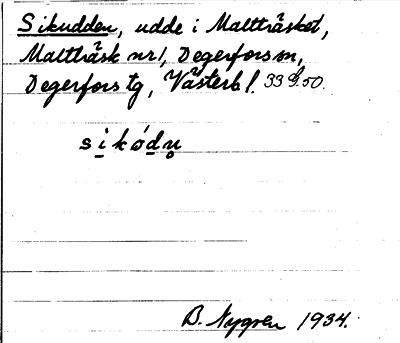 Sikudden, udde i Mallträsket,
Mallträsk nr 1, Degerfors sn,
Degerfors tg, Västerb l.
sikódu
B. Nygren 1934.